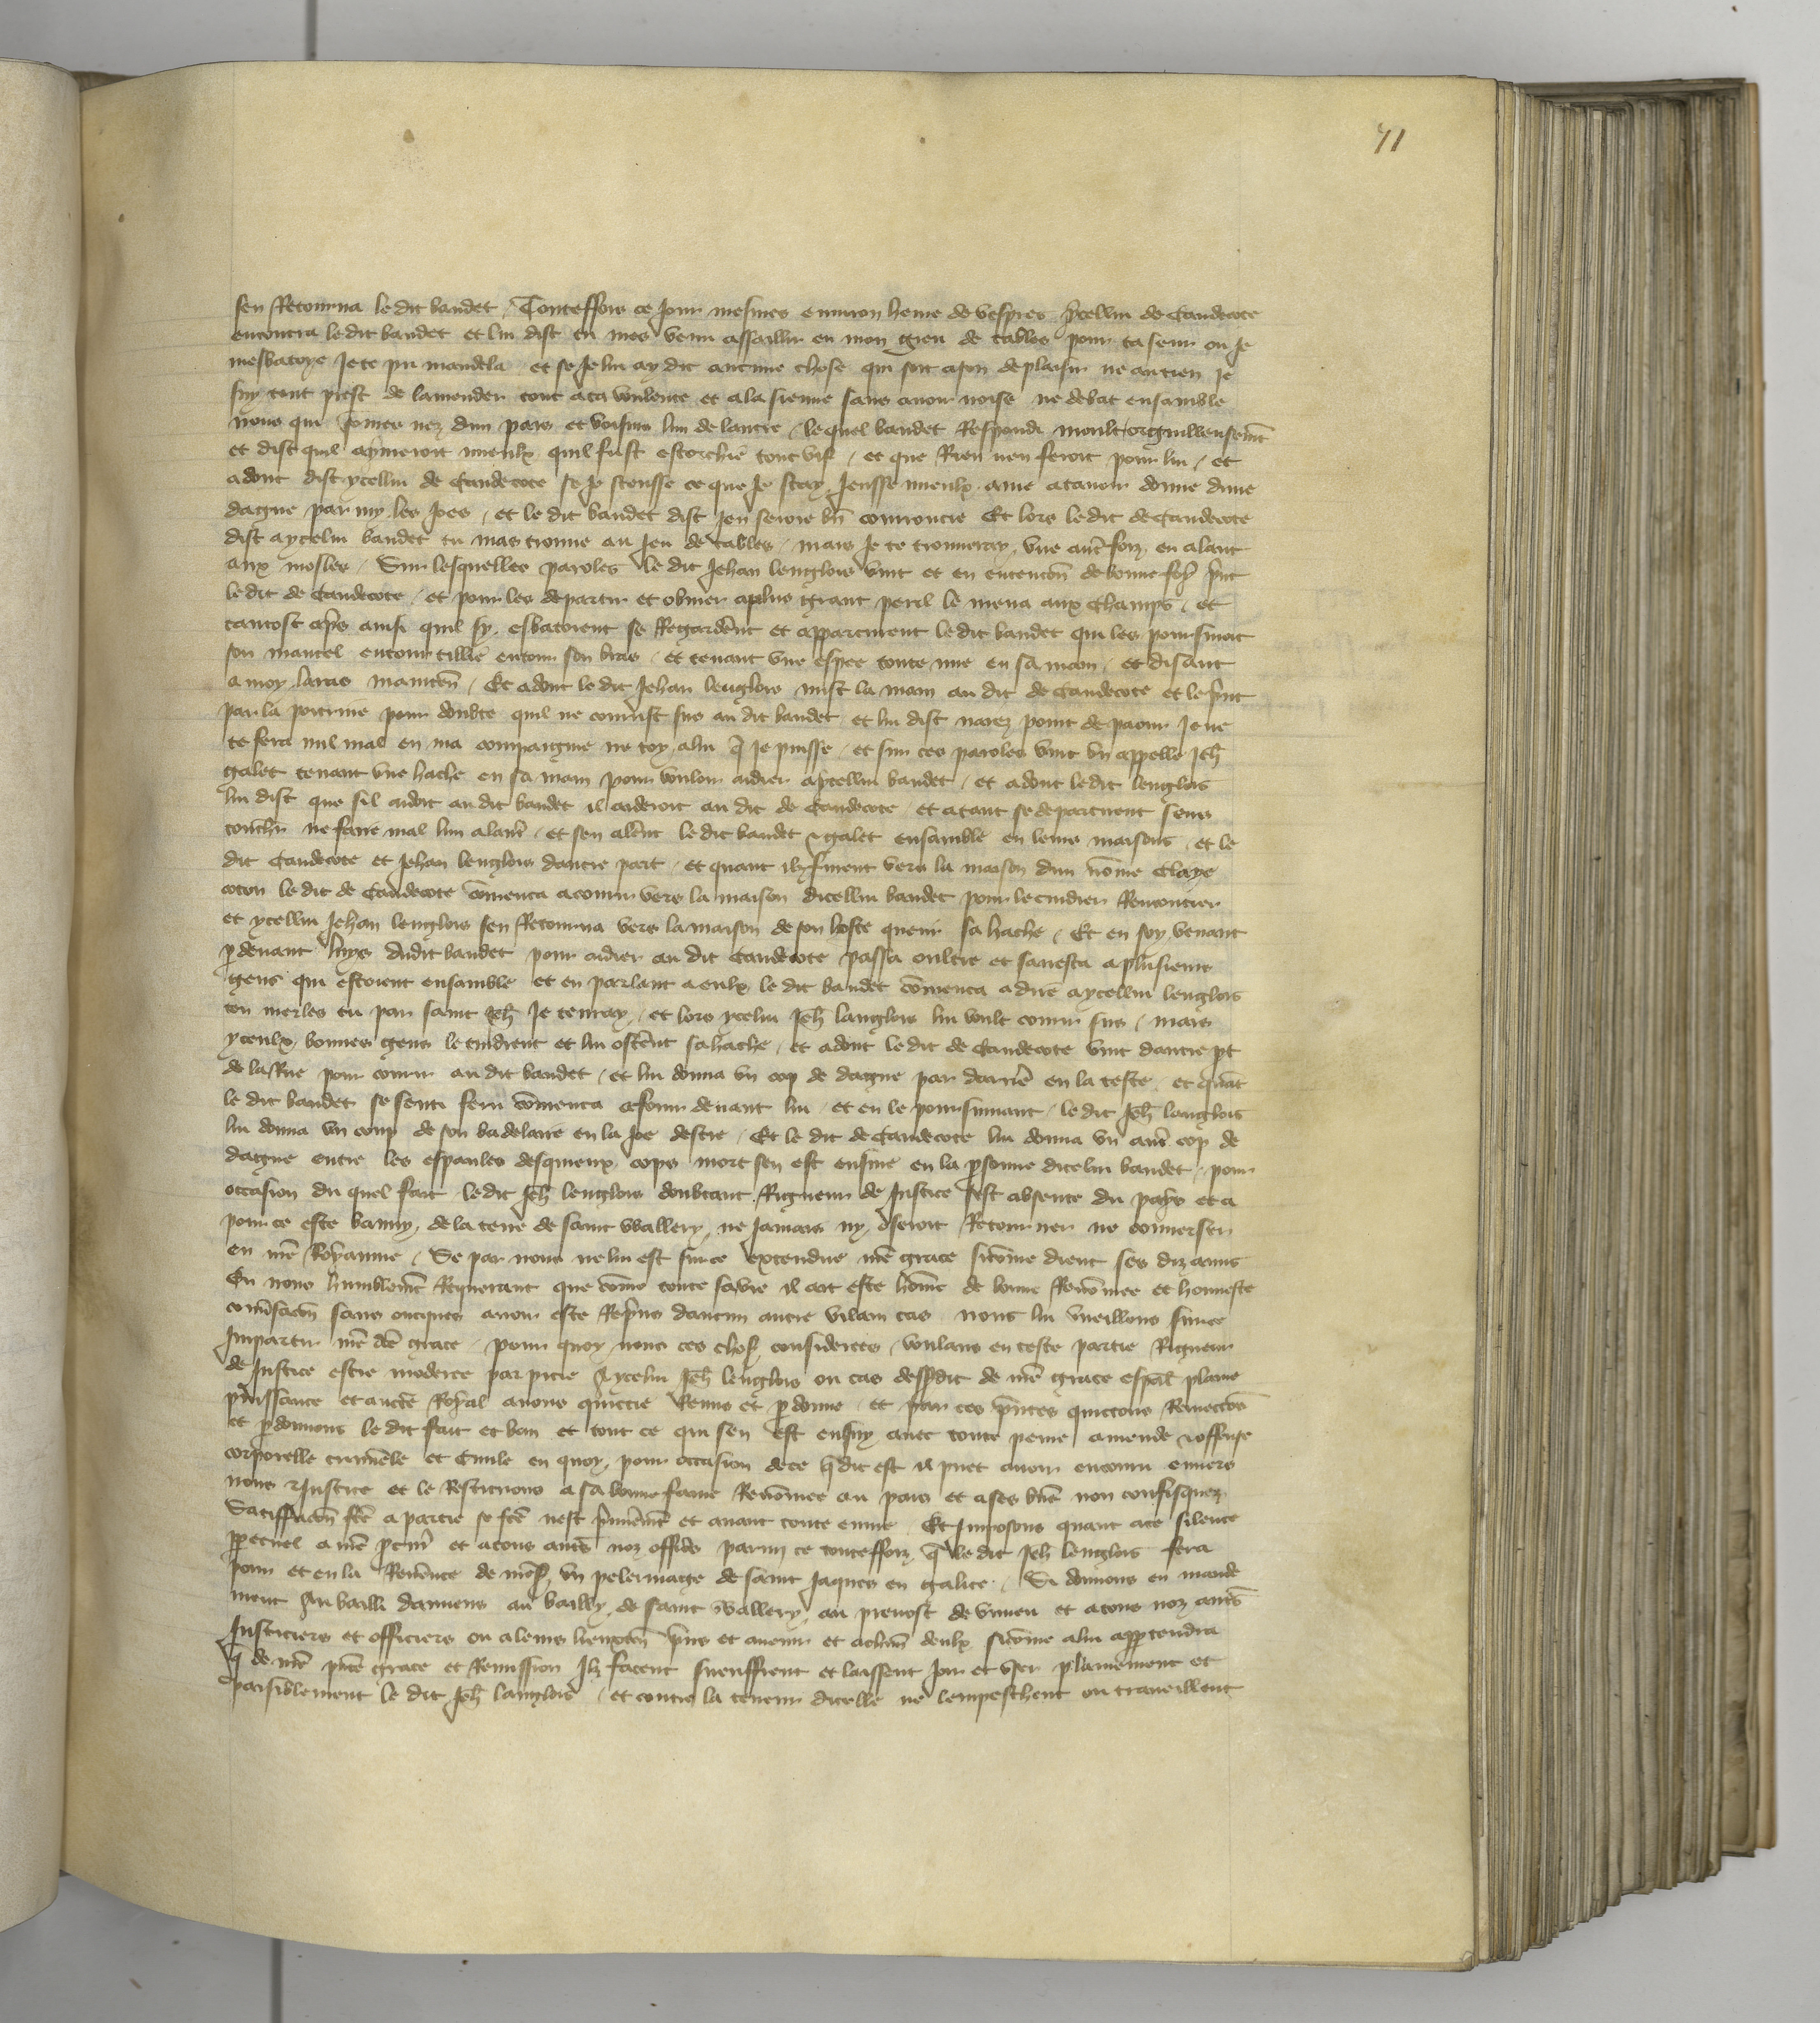 71
sen Retourna ledit baudet / Touteffois ce Jour mesmes enuiron heure de vespres ycellui de Caudecote
encontra ledit baudet et lui dist tu mes venu assaillir en mon gieu de tables pour ta seur ou Je
mesbatoye Je te pri mande la et se Je lui ay dit aucune chose qui soit a son deplaisir ne au tien Je
suy tout prest de lamender tout a ta voulente et a la sienne sans auoir noise ne debat ensamble
nous qui sommes nez dun pais et voisins lun de lautre / lequel baudet Respondi moult orguilleusemt
et dist quil aymeroit mieulx quil fust escorchie tout vif / et que Rien nen feroit pour lui / et
adont dist ycellui de Caudecote se Je sceusse ce que Je scay Jeusse mieulx ame a tauoir donne dune
dague par my les Joes / et le dit baudet dist Jen seroie bn courroucie Et lors ledit de Caudecote
dist a ycelui baudet tu mas trouue au Jeu de tables / mais Je te trouueray vne aut foiz en alant
aux mosles / Sur lesquelles paroles le dit Jehan lenglois vint et en entencon de bonne foy print
ledit de Caudecote / et pour les departir et obuier a plus grant peril le mena aux Champs / et
tantost apres ainsi quil sy esbatoient se Regarderent et apparceurent le dit baudet qui les poursuioit
son mantel entourtillie entour son bras / et tenant vne espee toute nue en sa main / et disant
a moy laras mainten / Et adont le dit Jehan lenglois mist la main au dit de Caudecote et le print
par la poitrine pour doubte quil ne courust sus au dit baudet et lui dist naiez point de paour Je ne
te fera nul mal en ma compaignie ne toy a lui q Je puisse / et sur ces paroles vint vn appelle Jeh
galet tenant vne hache en sa main pour vouloir aidier a ycellui baudet / et adont ledit lenglois
lui dist que sil aidoit au dit baudet il aideroit au dit de Caudecote / et atant se departirent sens
touchier ne faire mal lun a laut / et sen alerent le dit baudet & galet ensamble en leurs maisons / et le
dit Caudecote et Jehan lenglois dautre part / et quant ilz furent vers la maison dun nomme Claye
coton le dit de Caudecote comenca a courir vers la maison dicellui baudet pour le cuidier Rencontrer
et ycellui Jehan lenglois sen Retourna vers la maison de son hoste querir sa hache / Et en soy venant
p deuant luys dudit baudet pour aidier au dit Caudecote passa oultre et saresta a plusieurs
gens qui estoient ensamble et en parlant a eulx le dit baudet comenca a dire a ycellui lenglois
ten merles tu par saint Jeh Je tenray / et lors ycelui Jeh langlois lui voult courir sus / mais
yceulx bonnes gens le tindrent et lui osterent sa hache / et adont le dit de Caudecote vint dautre pt
de la Rue pour courir au dit baudet / et lui donna vn cop de dague par darrie en la teste / et quat
le dit baudet se senti feru comenca a fouir deuant lui / et en le poursuiuant / le dit Jeh langlois
lui donna vn coup de son badelaire en la Joe destre / Et le dit de Caudecote lui donna vn aut cop de
dague entre les espaules desquieux cops mort sen est ensuie en la psonne dicelui baudet / pour
occasion du quel fait le dit Jeh lenglois doubtant Rigueur de Justice sest absente du pays et a
pour ce este banny de la terre de saint Wallery / ne Jamais ny oseroit Retourner ne conuerser
en nre Royaume / Se par nous ne lui est sur ce extendue nre grace sicome dient ses diz amis
En nous humblemt Requerant que come toute sa vie il ait este home de bonne Renommee et honneste
conusacon sans oncques auoir este Repris daucun autre vilain cas nous lui vueillons sur ce
Impartir nre dte grace / pour quoy nous ces choses considerees voulans en ceste partie Rigueur
de Justice estre moderee par pitie A ycelui Jeh lenglois ou cas dessusdit de nre grace espal plaine
puissance et aucte Royal auons quittie Remis et pdonne et par ces pntes quittons Remettons
et pdonnons le dit fait et ban et tout ce qui sen est ensuy auec toute peine amende & offense
corporelle criminele et Ciuile en quoy pour occasion de ce q dit est il puet auoir encouru enuers
nous & Justice et le Restituons a sa bonne fame Renommee au pais et a ses biens non confisquez
Satiffacon fte a partie se fte nest p'mieremt et auant toute euure Et Imposons quant a ce silence
ppetuel a nre pcur et a tous autres noz officiers parmi ce touteffoiz q le dit Jeh lenglois fera
pour et en la Reuerence de nres vn pelerinage de saint Jaques en galice / Si donnons en mande
ment Au bailli damiens au bailly de saint Wallery au preuost de vimeu et a tous noz autres
Justiciers et officiers ou a leurs lieuxten pns et auenir et a chun deulx sicome a lui appartendra
q de nre pnte grace et Remission Ilz facent sueuffrent et laissent Joir et vser plainement et
paisiblement le dit Jeh langlois / et contre la teneur dicelle ne lempeschent ou traueillent